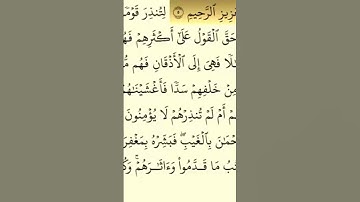 ٱلرَّحِيمِ ٥ لِتُنذِرَ
حَقَّ ٱلْقَوْلُ عَلَىٰٓ أَكْثَرِهِمْ
فَهِىَ إِلَى ٱلْأَذْقَانِ فَهُم
مِنْ خَلْفِهِمْ سَدًّا
أَمْ لَمْ تُنذِرْهُمْ لَا يُؤْمِنُونَ
بِٱلْغَيْبِ ۖ فَبَشِّرْهُ
مَا قَدَّمُوا۟ وَءَاثَـٰرَهُمْ ۚ